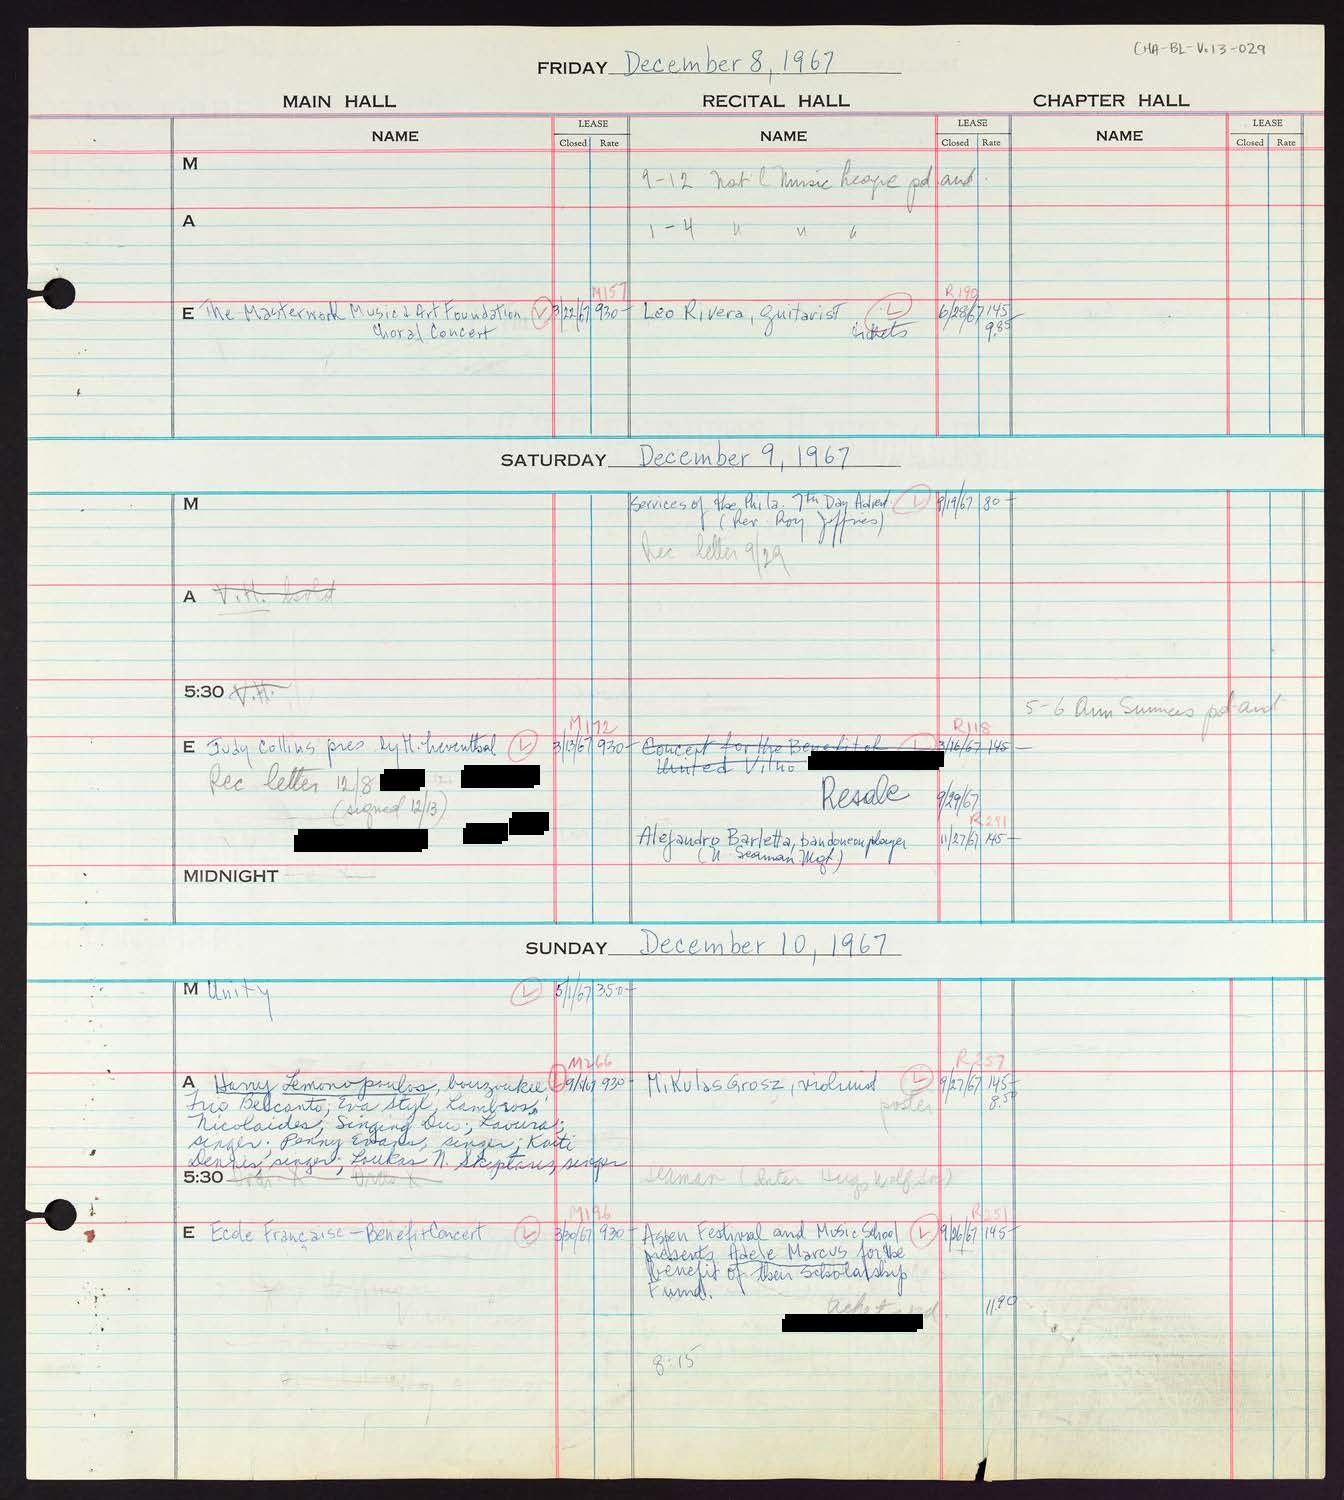 CHA-BL-V.13-029
FRIDAY December 8, 1967
MAIN HALL RECITAL HALL CHAPTER HALL
NAME LEASE NAME LEASE NAME LEASE
Closed Rate Closed Rate Closed Rate
M
9-12 Nat'l Music League pd and.
A
1-4 " " "
M157 R190
E The Masterwork Music & Art Foundation, L 3/22/67 930- Leo Rivera, guitarist L 6/28/67 145-
Choral Concert tickets 9.85
SATURDAY December 9, 1967
M Services of the Phila. 7th Day Advent L 9/19/67 80-
(Rev. Roy Jeffries)
Rec letter 9/29
A V.H. hold
5:30 V.H.
5-6 Ann pd and
M172 R118
E Judy Collins pres by H. Leventhal L 3/13/67 930- Concert for the Benefit of L 3/16/67 145-
Rec letter 12/8 United Vilno
(signed 12/13) Resale 9/29/67
R291
Alejandro Barletta, bandoneon player 11/27/67 145-
(N. Seaman Mgt)
MIDNIGHT
SUNDAY December 10, 1967
M Unity L 5/1/67 350-
M266 R257
A Harry Lemonopoulos, bouzoukie L 9/1/67 930- Mikulas Grosz, violinist L 9/27/67 145-
Trio Belcanto; Eva Styl, Lambros poster 8.50
Nicolaides, Singing Duo; Lavura;
singer; Penny Evans, singer; Kaiti
Dennis, singer; Loukas N. Skiptaris, singer
5:30 Seaman (Inter Hugo Wolf Soc)
M196 R251
E Ecole Française - Benefit Concert L 3/30/67 930- Aspen Festival and Music School L 9/26/67 145-
presents Adele Marcus for the
benefit of their Scholarship
Fund.
ticket pd. 11.90
8:15